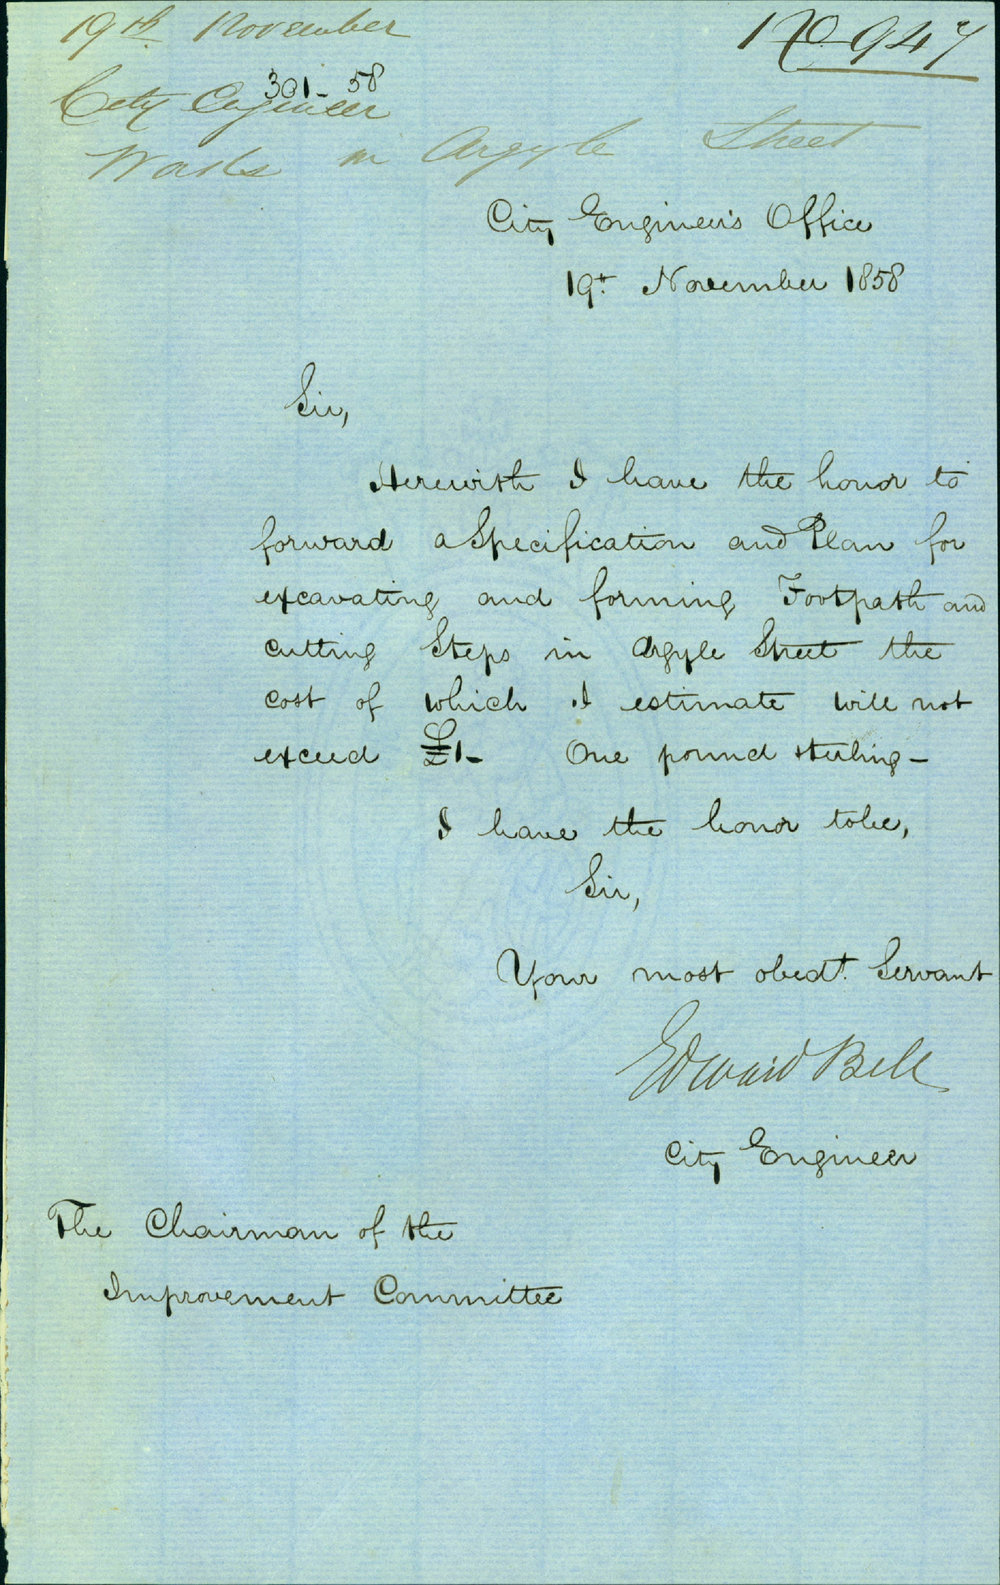 19th November
No 947
301-58
City Engineer
Works in Argyle Street
City Engineer's Office
19t. November 1858
Sir,
Herewith I have the honor to
forward a Specification and Plan for
excavating and forming Footpath and
cutting Steps in Argyle Street the
cost of which I estimate will not
exceed £1- One pound sterling-
I have the honor to be,
Sir,
Your most obedt. Servant
Edward Bell
City Engineer
The Chairman of the
Improvement Committee